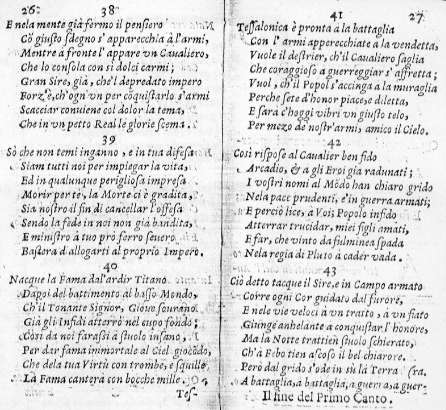 26. 38
E nela mente già fermo il pensiero
Cō giusto sdegno s'apparecchia à l'armi,
Mentre à fronte l'appare vn Caualiero,
Che lo consola con sì dolci carmi;
Gran Sire, già, che'l depredato impero
Forz'è, ch'ogn'vn per cōquistarlo s'armi
Scacciar conuiene col dolor la tema,
Che in vn petto Real le glorie scema.
39
Sò che non temi inganno, e in tua difesa
Siam tutti noi per impiegar la vita,
Ed in qualunque perigliosa impresa
Morir per te, la Morte ci è gradita,
Sia nostro il fin di cancellar l'offesa
Sendo la fede in noi non già bandita,
E ministro à tuo prò ferro seuero
Bastera d'allogarti al proprio Impero.
40
Nacque la Fama dal'ardir Titano
Dapoi del battimento al basso Mondo,
Ch'il Tonante Signor, Gioue sourano
Già gli Infidi atterrò nel cupo fondo;
Così da noi farassi à stuolo insano,
Per dar fama immortale al Ciel giocōdo,
Che dela tua Virtù con trombe, e squille
La Fama canterà con bocche mille.
Tes-
41 27
Tessalonica è pronta à la battaglia
Con l'armi apperecchiate à la vendetta,
Vuole il destrier, ch'il Caualiero saglia
Che coraggioso à guerreggiar s'affretta;
Vuol, ch'il Popol s'accinga à la muraglia
Perche sete d'honor piace, e diletta,
E sarà c'hoggi vibri vn giusto telo,
Per mezo de nostr'armi, amico il Cielo.
42
Così rispose al Caualier ben fido
Arcadio, & a gli Eroi già radunati;
I vostri nomi al Mōdo han chiaro grido
Nela pace prudenti, e'in guerra armati;
E perciò lice, à Vois Popolo infido
Atterrar trucidar, miei figli amati,
E far, che vinto da fulminea spada
Nela regia di Pluto à cader vada.
43
Ciò detto tacque il Sire, e in Campo armato
Corre ogni Cor guidato dal furore,
E nele vie veloci à vn tratto, à vn fiato
Giunge anhelante a conquistar l'honore,
Ma la Notte trattien stuolo schierato,
Ch'à Febo tien ascoso il bel chiarore.
Però dal grido s'ode in sù la Terra (ra.
A battaglia, a battaglia, a guerra a guer-
Il fine del Primo Canto.